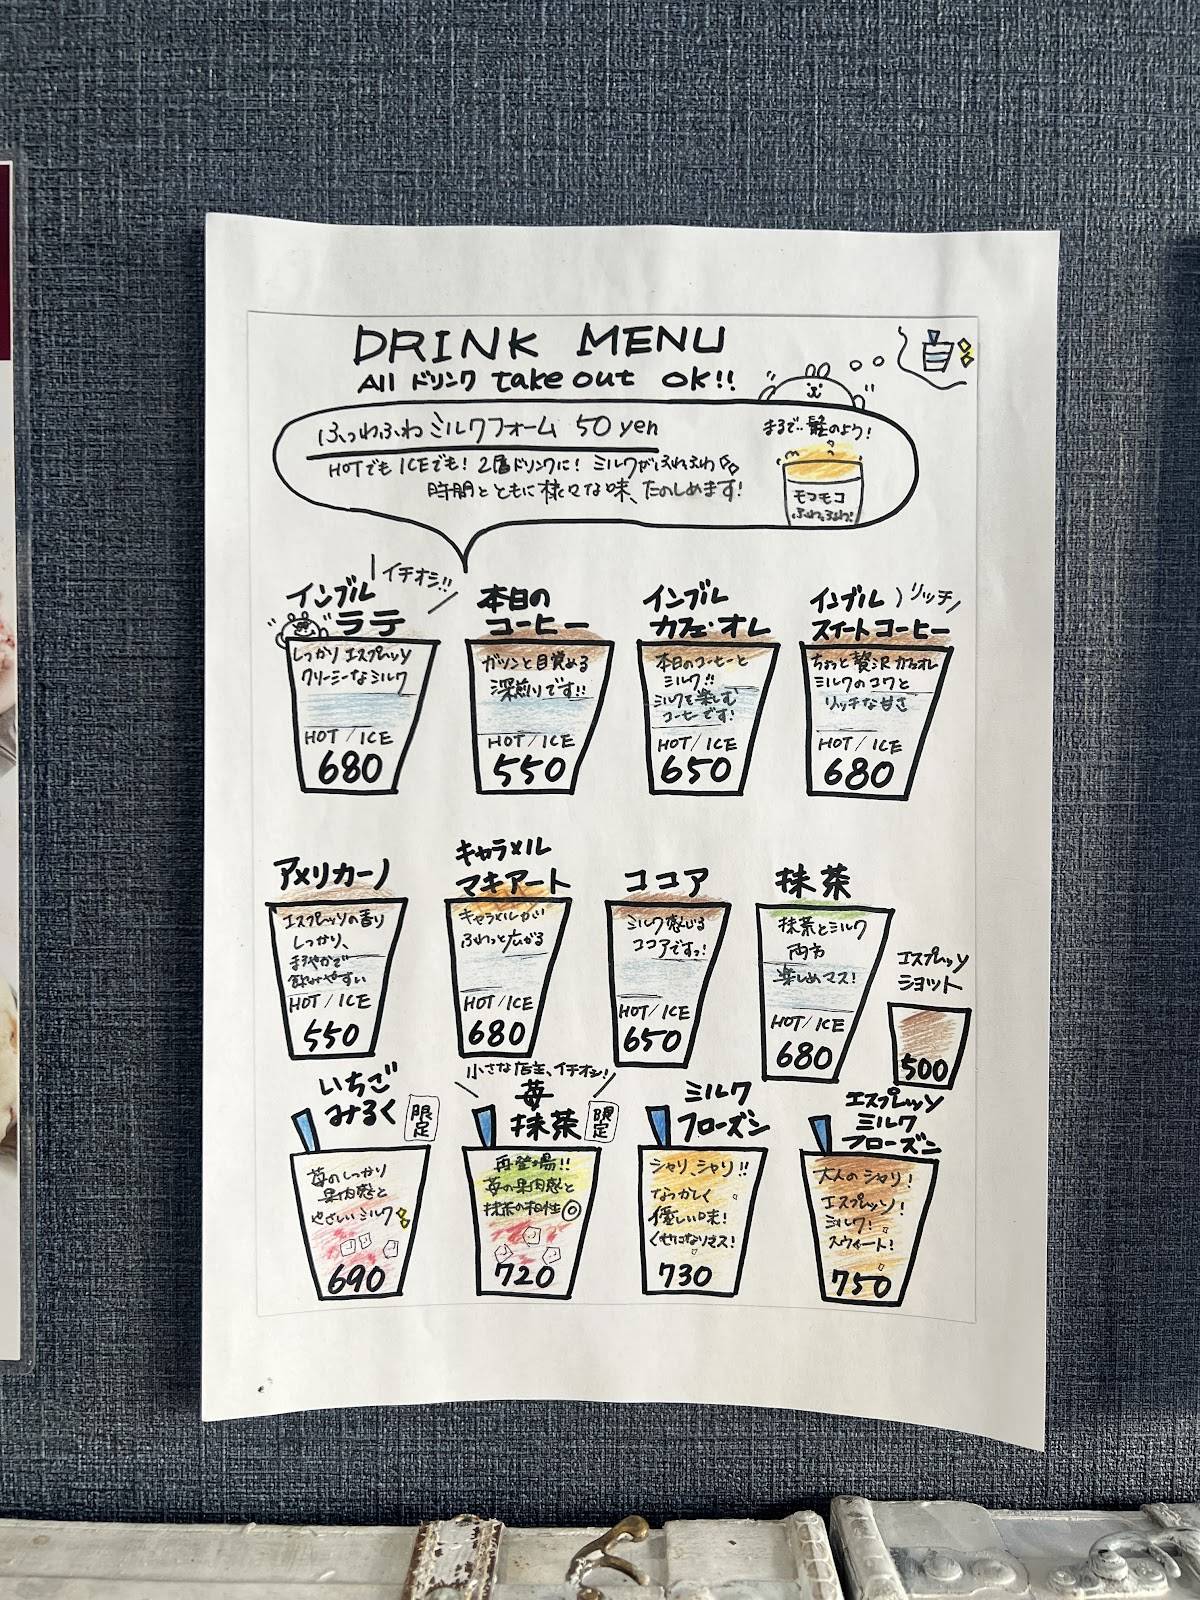 DRINK MENU
All ドリンク take out OK!!
ふわふわミルクフォーム 50yen
HOTでもICEでも! 2層ドリンクに! ミルクがふわふわ
時間とともに様々な味、たのしめます!
まるで髭のよう!
モコモコ
ふわふわ!
イチオシ!!
インブル
ラテ
しっかり エスプレッソ
クリーミーなミルク
HOT/ICE
680
本日の
コーヒー
ガツンと目覚める
深煎りです!!
HOT/ICE
550
インブル
カフェ・オレ
本日のコーヒーと
ミルク!!
ミルクを楽しむ
コーヒーです!
HOT/ICE
650
インブル
リッチ
スイートコーヒー
ちょっと贅沢カフェオレ
ミルクのコクと
リッチな甘さ
HOT/ICE
680
アメリカーノ
エスプレッソの香り
しっかり、
まろやかで
飲みやすい
HOT/ICE
550
キャラメル
マキアート
キャラメルがい
ふわっと広がる
HOT/ICE
680
ココア
ミルク感じる
ココアですっ!
HOT/ICE
650
抹茶
抹茶とミルク
両方
楽しめマス!
HOT/ICE
680
エスプレッソ
ショット
500
いちご
みるく
限定
苺のしっかり
果肉感と
やさしいミルク
690
小さな店主、イチオシ!
苺
抹茶
限定
再登場!!
苺の果肉感と
抹茶の相性◎
720
ミルク
フローズン
シャリ、シャリ!!
なつかしく
優しい味!
くせになりマス!
730
エスプレッソ
ミルク
フローズン
大人のシャリ!
エスプレッソ!
ミルク!
スウィート!
750